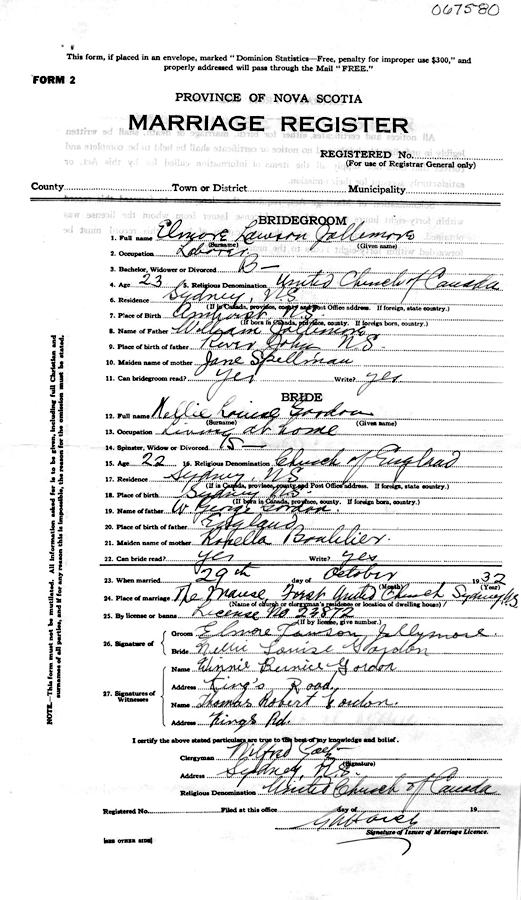 067580
This form, if placed in an envelope, marked "Dominion Statistics—Free, penalty for improper use $300," and
properly addressed will pass through the Mail "FREE."
FORM 2
PROVINCE OF NOVA SCOTIA
MARRIAGE REGISTER
REGISTERED No.
(For use of Registrar General only)
County Town or District Municipality
BRIDEGROOM
1. Full name Elmore Lawson Jollymore
(Surname) (Given name)
2. Occupation Laborer
3. Bachelor, Widower or Divorced B—
4. Age 23 5. Religious Denomination United Church of Canada
6. Residence Sydney, N.S.
(If in Canada, province, county and Post Office address. If foreign, state country.)
7. Place of Birth Amherst N.S.
(If born in Canada, province, county. If foreign born, country.)
8. Name of Father William
9. Place of birth of father River John N.S.
10. Maiden name of mother Jane Spellman
11. Can bridegroom read? yes Write? yes
BRIDE
12. Full name Nellie Louise Gordon
(Surname) (Given name)
13. Occupation Living at home
14. Spinster, Widow or Divorced
15. Age 22 16. Religious Denomination Church of England
17. Residence Sydney, N.S.
(If in Canada, province, county and Post Office address. If foreign, state country.)
18. Place of birth Sydney N.S.
(If born in Canada, province, county. If foreign born, country.)
19. Name of father W George Gordon
20. Place of birth of father England
21. Maiden name of mother Rosella Boutilier
22. Can bride read? yes Write? yes
23. When married 29th day of October 1932
(Month)
24. Place of marriage The Manse, First United Church Sydney N.S.
(Name of church or clergyman's residence or location of dwelling house)
25. By license or banns License No 23872
(If by license, give number.)
26. Signature of Groom Elmore Lawson Jollymore
Bride Nellie Louise Gordon
27. Signatures of Witnesses
Name Winnie Bernice Gordon
Address King's Road
Name Thomas Robert Gordon.
Address Kings Rd.
I certify the above stated particulars are true to the best of my knowledge and belief.
Clergyman Wilfred
(Signature)
Address Sydney, N.S.
Religious Denomination United Church of Canada
Registered No. Filed at this office day of 19
Signature of Issuer of Marriage Licence.
[SEE OTHER SIDE]
NOTE.—This form must not be mutilated. All information asked for is to be given, including full Christian and
surnames of all parties, and if for any reason this is impossible, the reason for the omission must be stated.